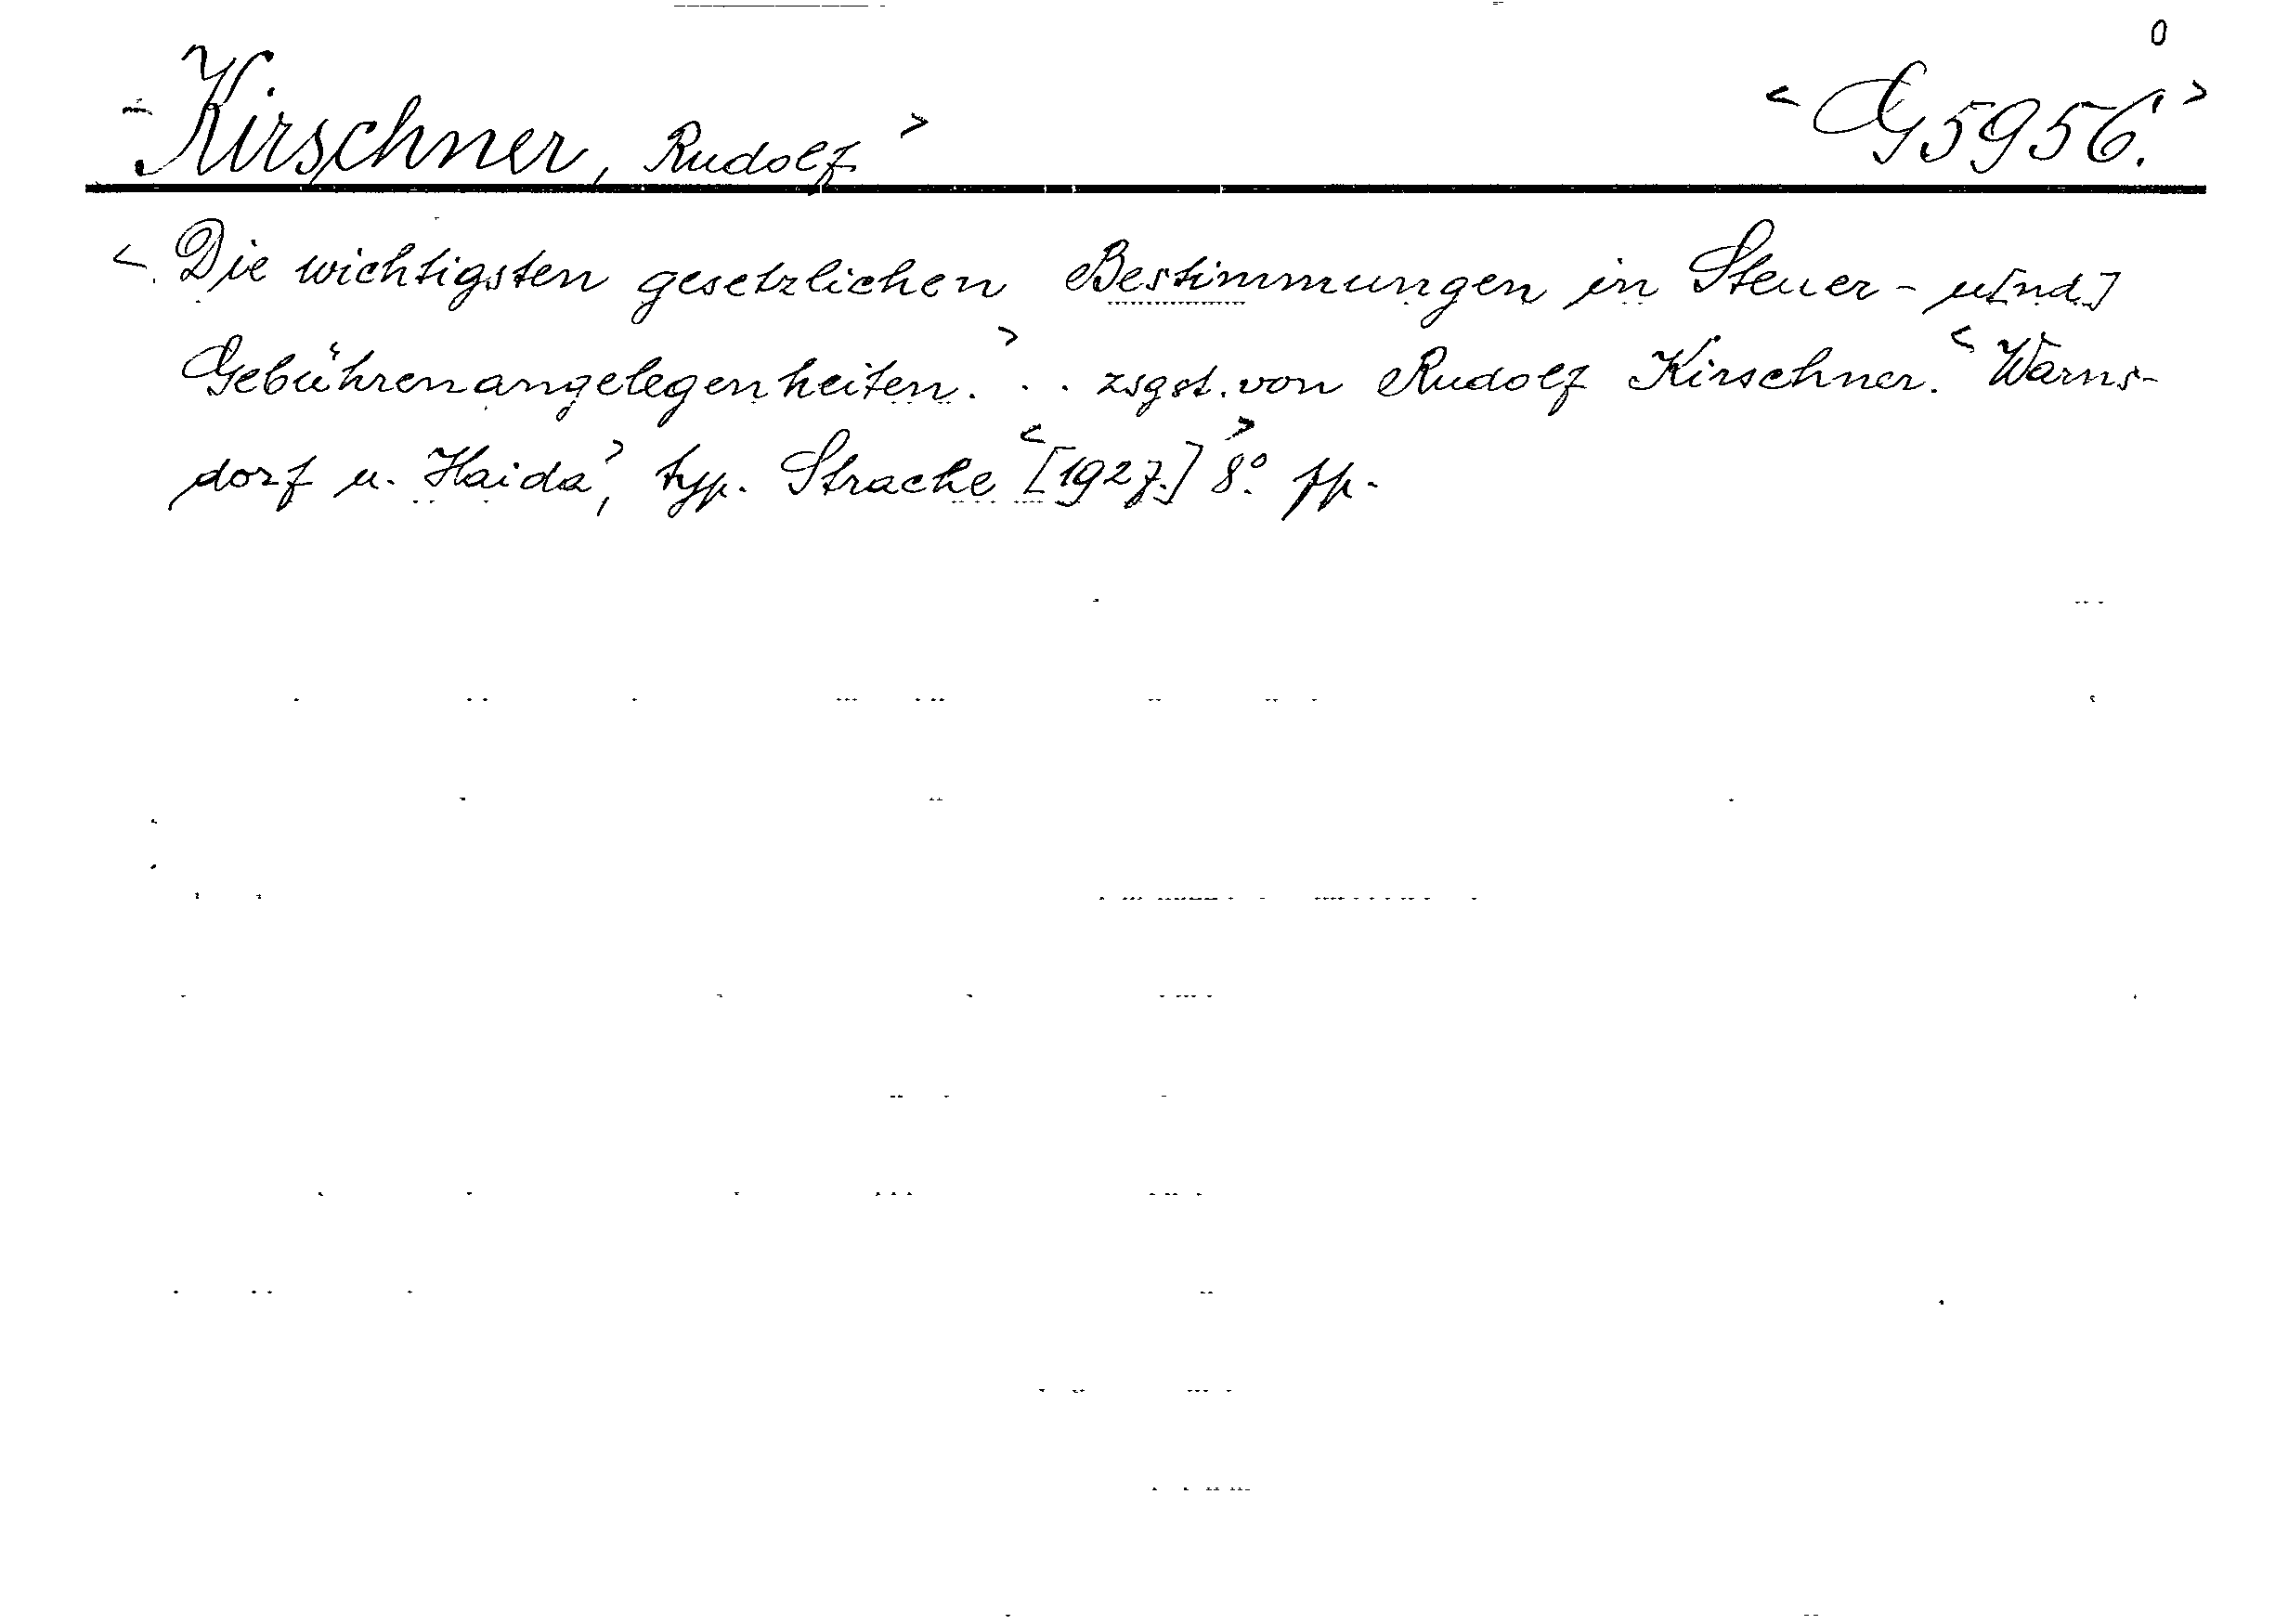 Kirschner, Rudolf > < G 5956. >
< Die wichtigsten gesetzlichen Bestimmungen in Steuer- u[nd]
Gebührenangelegenheiten. > . . zsgst. von Rudolf Kirschner. < Warns-
dorf u. Haida >, typ. Strache < [1927.] > 8°. pp.